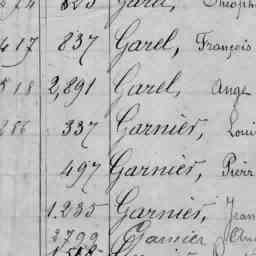 Garel,
417 837 Garel, François
518 2,891 Garel, Ange
286 337 Garnier, Loui
497 Garnier, Pierr
1.235 Garnier, Jean
2799 Garnier